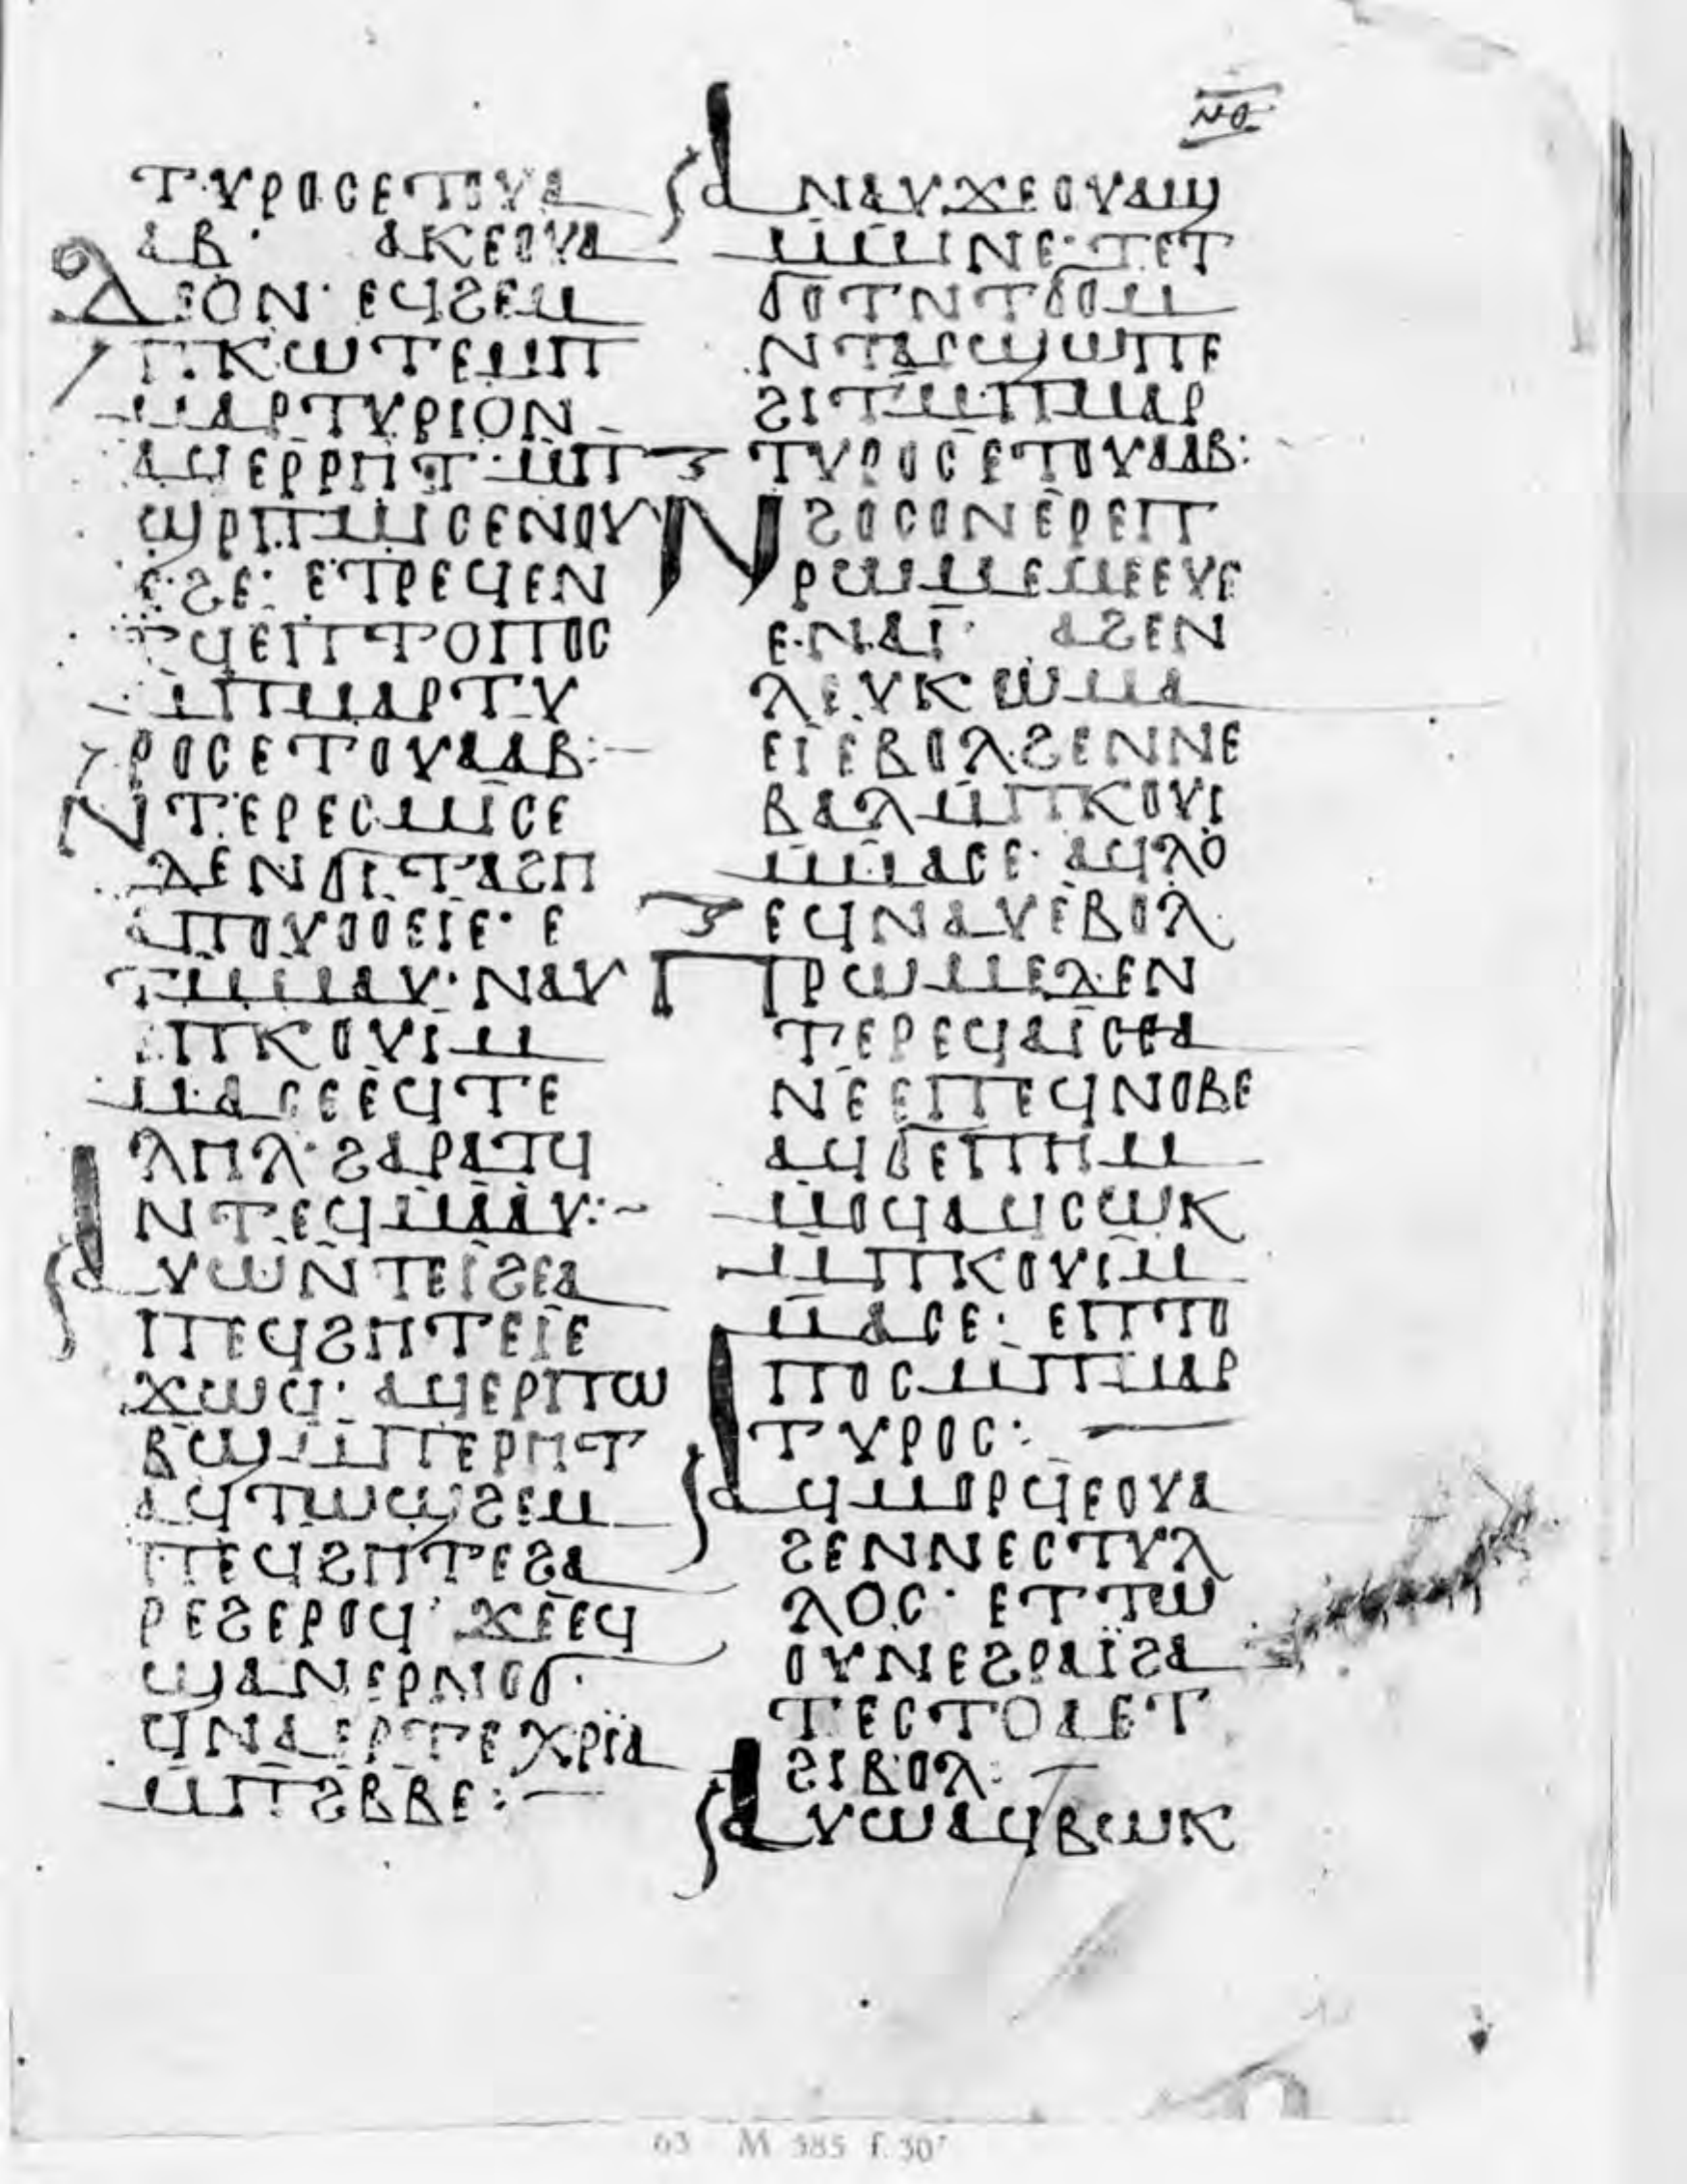 ⲛⲑ
ⲧⲩⲣⲟⲥⲉⲧⲟⲩⲁ
ⲁⲃ· ⲁⲕⲉⲟⲩⲁ
ⲇⲉⲟⲛ· ⲉϥϩⲉⲙ
ⲡⲕⲱⲧⲉⲙⲡ
ⲙⲁⲣⲧⲩⲣⲓⲟⲛ
ⲁϥⲉⲣⲣⲏⲧ·ⲙⲡ
ϣⲣⲡⲙⲓⲥⲉⲛⲟⲩ
ⲉϩⲉ· ⲉⲧⲣⲉϥⲉⲛ
ⲧϥⲉⲡⲧⲟⲡⲟⲥ
ⲙⲡⲙⲁⲣⲧⲩ
ⲣⲟⲥⲉⲧⲟⲩⲁⲁⲃ:—
ⲛⲧⲉⲣⲉⲥⲙⲓⲥⲉ
ⲇⲉⲛϭⲓⲧⲁϩⲏ
ⲙⲡⲟⲩⲟⲉⲓⲉ· ⲉ
ⲧⲙⲙⲁⲩ·ⲛⲁⲩ
ⲉⲡⲕⲟⲩⲓⲙ
ⲙⲁⲥⲉⲉϥⲧⲉ
ⲗⲏⲗ·ϩⲁⲣⲁⲧϥ
ⲛⲧⲉϥⲙⲁⲁⲩ:~
ⲁⲩⲱⲛⲧⲉⲓϩⲉⲁ
ⲡⲉϥϩⲏⲧⲉⲓⲉ
ϫⲱϥ· ⲁϥⲉⲣⲡⲱ
ⲃϣⲙⲡⲉⲣⲏⲧ
ⲁϥⲧⲱϣϩⲉⲙ
ⲡⲉϥϩⲏⲧⲉϩⲁ
ⲣⲉϩⲉⲣⲟϥ· ϫⲉⲉϥ
ϣⲁⲛⲉⲣⲛⲟϭ·
ϥⲛⲁⲉⲣⲧⲉⲭⲣⲓⲁ
ⲙⲡϩⲃⲃⲉ:—
ⲁⲛⲁⲩϫⲉⲟⲩⲁϣ
ⲙⲙⲓⲛⲉ· ⲧⲉⲧ
ϭⲟⲧⲛⲧϭⲟⲙ
ⲛⲧⲁⲥϣⲱⲡⲉ
ϩⲓⲧⲙⲡⲙⲁⲣ
ⲧⲩⲣⲟⲥⲉⲧⲟⲩⲁⲁⲃ:
ⲛϩⲟⲥⲟⲛⲉⲣⲉⲡ
ⲣⲱⲙⲉⲙⲉⲉⲩⲉ
ⲉⲛⲁⲓ· ⲁϩⲉⲛ
ⲗⲉⲩⲕⲱⲙⲁ
ⲉⲓⲉⲃⲟⲗϩⲉⲛⲛⲉ
ⲃⲁⲗⲙⲡⲕⲟⲩⲓ
ⲙⲙⲁⲥⲉ· ⲁϥⲗⲟ
ⲉϥⲛⲁⲩⲉⲃⲟⲗ
ⲡⲣⲱⲙⲉⲇⲉⲛ
ⲧⲉⲣⲉϥⲁⲓⲥⲑⲁ
ⲛⲉⲉⲡⲉϥⲛⲟⲃⲉ
ⲁϥϭⲉⲡⲏⲙ
ⲙⲟϥⲁϥⲥⲱⲕ
ⲙⲡⲕⲟⲩⲓⲙ
ⲙⲁⲥⲉ· ⲉⲡⲧⲟ
ⲡⲟⲥⲙⲡⲙⲁⲣ
ⲧⲩⲣⲟⲥ: —
ⲁϥⲙⲟⲣϥⲉⲟⲩⲁ
ϩⲉⲛⲛⲉⲥⲧⲩⲗ
ⲗⲟⲥ· ⲉⲧⲧⲱ
ⲟⲩⲛⲉϩⲣⲁⲓϩⲁ
ⲧⲉⲥⲧⲟⲁⲉⲧ
ϩⲓⲃⲟⲗ: —
ⲁⲩⲱⲁϥⲃⲱⲕ
63 M 585 f. 30ʳ